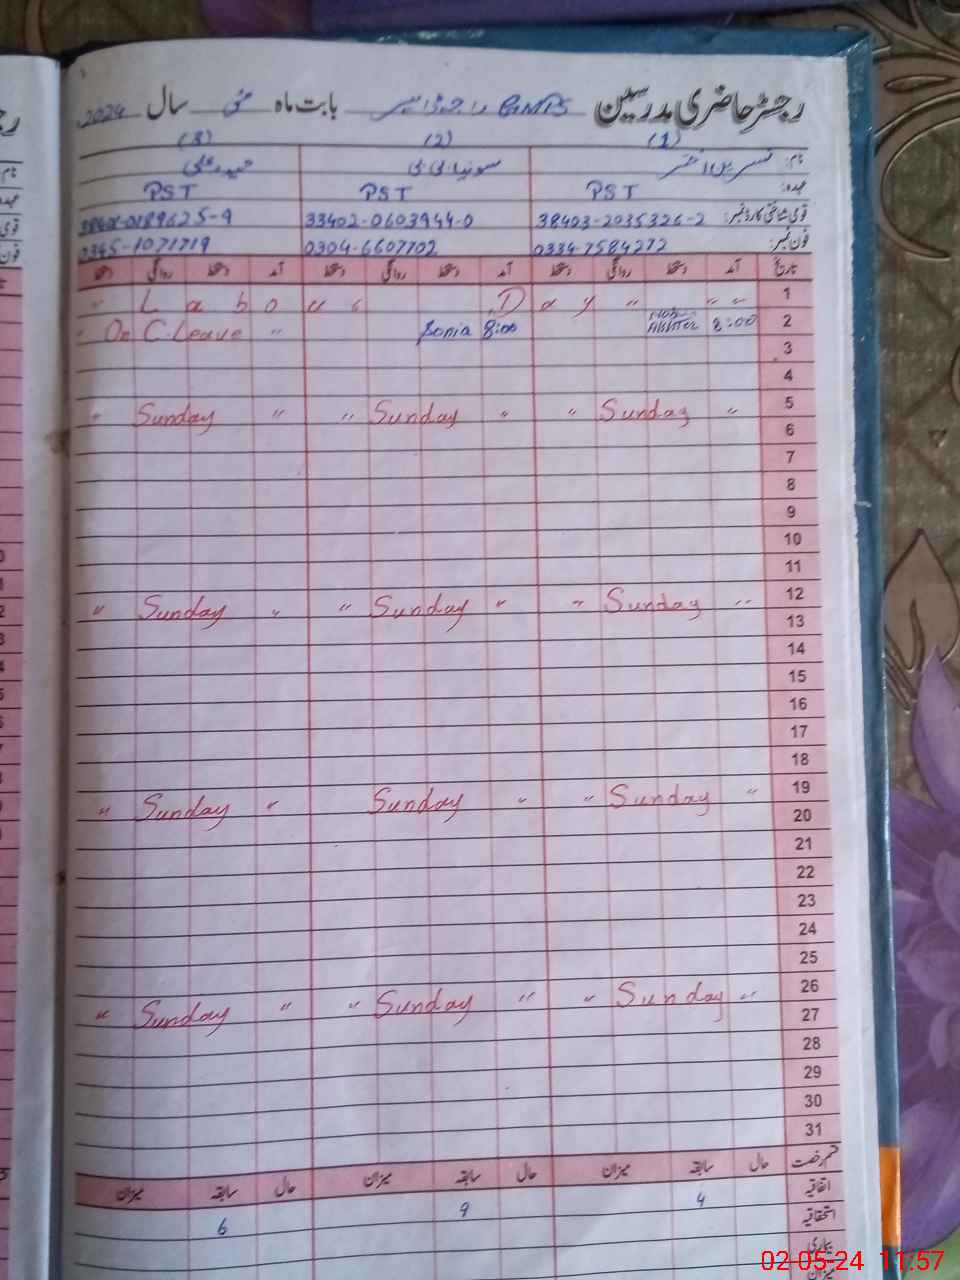 رجسٹر حاضری مدرسین GMPS بابت ماہ مئی سال 2024
(1) (2) (3)
نام: سونیا بی بی حیدر علی
عہدہ: PST PST PST
قومی شناختی کارڈ نمبر: 38403-2035326-2 33402-0603944-0
فون نمبر: 0334-7584272 0304-6607702 0345-1071719
تاریخ آمد دستخط روانگی دستخط آمد دستخط روانگی دستخط آمد دستخط روانگی دستخط
1 " Labour Day " " "
2 " On C.Leave " Sonia 8:00 8:00
3
4
5 " Sunday " " Sunday " " Sunday "
6
7
8
9
10
11
12 " Sunday " " Sunday " " Sunday "
13
14
15
16
17
18
19 " Sunday " Sunday " " Sunday "
20
21
22
23
24
25
26 " Sunday " " Sunday " " Sunday "
27
28
29
30
31
قسم رخصت حال سابقہ میزان حال سابقہ میزان حال سابقہ میزان
اتفاقیہ 4 9 6
استحقاقیہ
بیماری
میزان
02-05-24 11:57